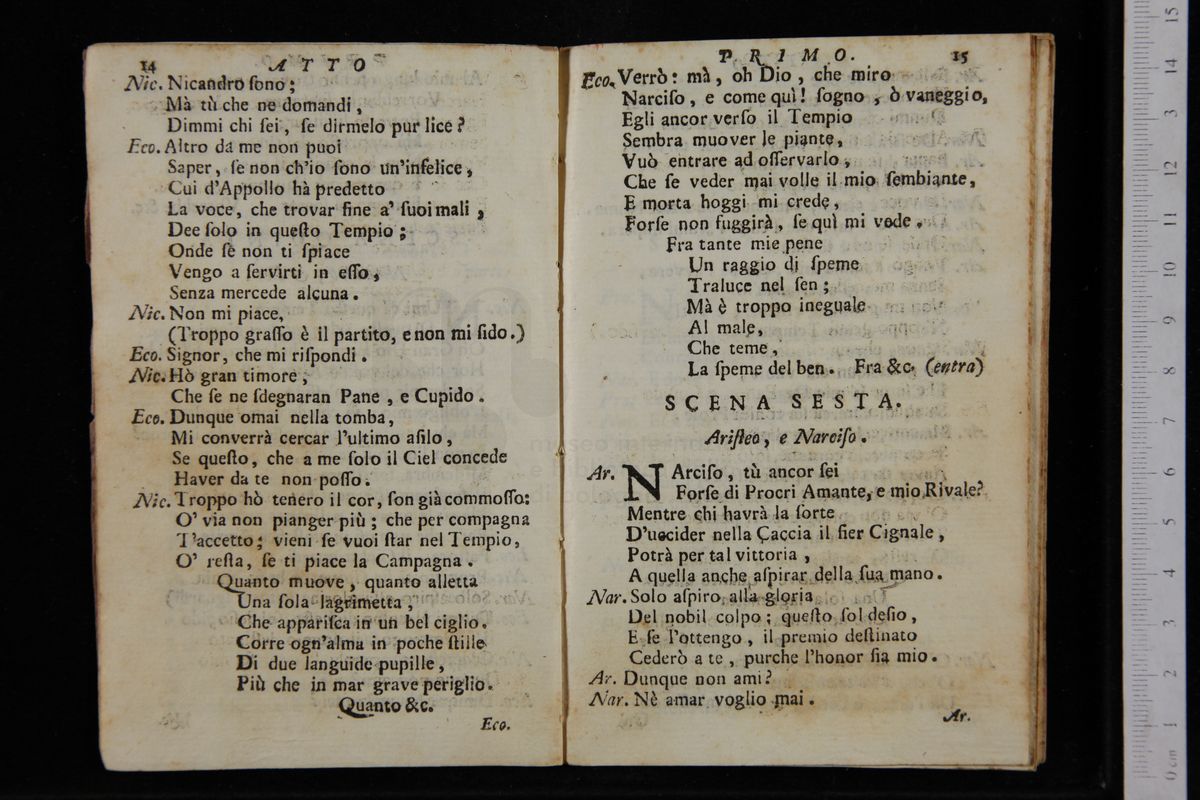 14 ATTO
Nic. Nicandro ſono;
Mà tù che ne domandi,
Dimmi chi ſei, ſe dirmelo pur lice?
Eco. Altro da me non puoi
Saper, ſe non ch'io ſono un'infelice,
Cui d'Appollo hà predetto
La voce, che trovar fine a' ſuoi mali,
Dee ſolo in queſto Tempio;
Onde ſe non ti ſpiace
Vengo a ſervirti in eſſo,
Senza mercede alcuna.
Nic. Non mi piace,
(Troppo graſſo è il partito, e non mi fido.)
Eco. Signor, che mi riſpondi.
Nic. Hò gran timore,
Che ſe ne ſdegnaran Pane, e Cupido.
Eco. Dunque omai nella tomba,
Mi converrà cercar l'ultimo aſilo,
Se queſto, che a me ſolo il Ciel concede
Haver da te non poſſo.
Nic. Troppo hò tenero il cor, ſon già commoſſo:
O' via non pianger più; che per compagna
T'accetto; vieni ſe vuoi ſtar nel Tempio,
O' reſta, ſe ti piace la Campagna.
Quanto muove, quanto alletta
Una ſola lagrimetta,
Che appariſca in un bel ciglio.
Corre ogn'alma in poche ſtille
Di due languide pupille,
Più che in mar grave periglio.
Quanto &c.
Eco.
PRIMO. 15
Eco. Verrò: mà, oh Dio, che miro
Narciſo, e come quì! ſogno, ò vaneggio,
Egli ancor verſo il Tempio
Sembra muover le piante,
Vuò entrare ad oſſervarlo,
Che ſe veder mai volle il mio ſembiante,
E morta hoggi mi crede,
Forſe non fuggirà, ſe quì mi vede.
Fra tante mie pene
Un raggio di ſpeme
Traluce nel ſen;
Mà è troppo ineguale
Al male,
Che teme,
La ſpeme del ben. Fra &c. (entra)
SCENA SESTA.
Ariſteo, e Narciſo.
Ar. NArciſo, tù ancor ſei
Forſe di Procri Amante, e mio Rivale?
Mentre chi havrà la ſorte
D'uccider nella Caccia il fier Cignale,
Potrà per tal vittoria,
A quella anche aſpirar della ſua mano.
Nar. Solo aſpiro alla gloria
Del nobil colpo; queſto ſol deſio,
E ſe l'ottengo, il premio deſtinato
Cederò a te, purche l'honor ſia mio.
Ar. Dunque non ami?
Nar. Nè amar voglio mai.
Ar.
0 cm 1 2 3 4 5 6 7 8 9 10 11 12 13 14 15